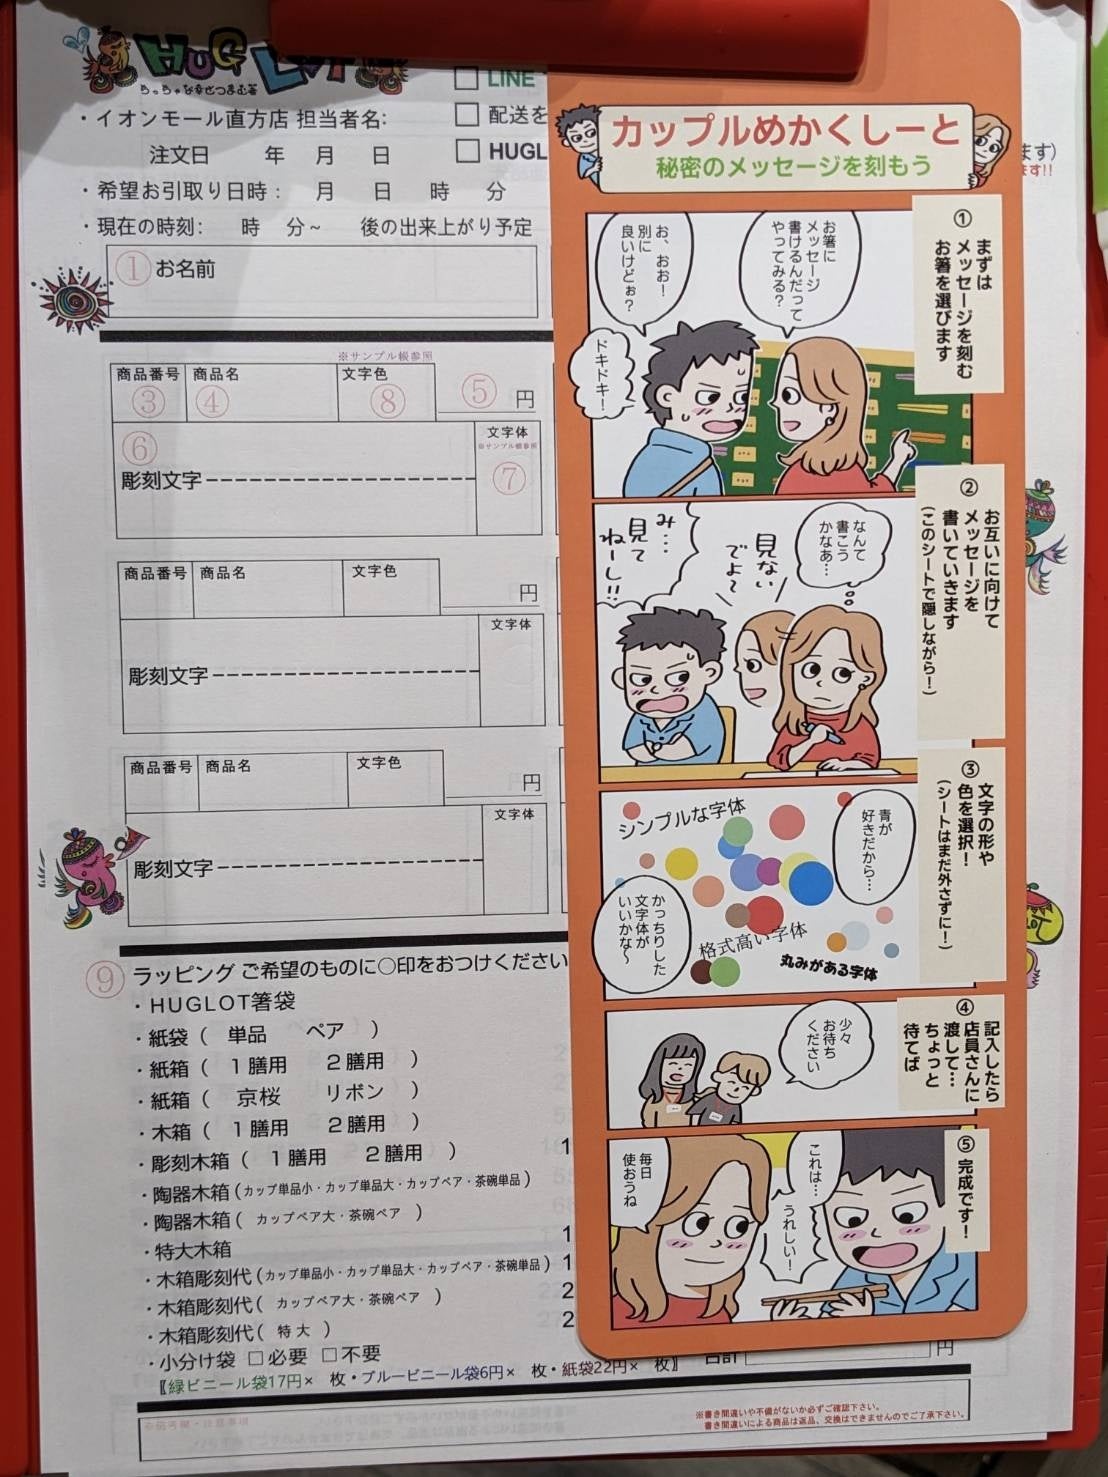 HUG LOT
ちっちゃな幸せつまむ箸
・イオンモール直方店 担当者名:
注文日 年 月 日
・希望お引取り日時: 月 日 時 分
・現在の時刻: 時 分~ 後の出来上がり予定
LINE
配送を
HUGL
ます)
ます!!
① お名前
※サンプル帳参照
商品番号 商品名 文字色
③ ④ ⑧ ⑤ 円
⑥ 文字体
※サンプル帳参照
彫刻文字 ⑦
商品番号 商品名 文字色
円
文字体
彫刻文字
商品番号 商品名 文字色
円
文字体
彫刻文字
⑨ ラッピング ご希望のものに○印をおつけください
・HUGLOT箸袋
・紙袋( 単品 ペア )
・紙箱( 1膳用 2膳用 )
・紙箱( 京桜 リボン )
・木箱( 1膳用 2膳用 )
・彫刻木箱( 1膳用 2膳用 ) 1
・陶器木箱(カップ単品小・カップ単品大・カップペア・茶碗単品)
・陶器木箱( カップペア大・茶碗ペア )
・特大木箱 1
・木箱彫刻代(カップ単品小・カップ単品大・カップペア・茶碗単品) 1
・木箱彫刻代( カップペア大・茶碗ペア ) 2
・木箱彫刻代( 特大 ) 2
・小分け袋 □必要 □不要
〖緑ビニール袋17円× 枚・ブルービニール袋6円× 枚・紙袋22円× 枚〗
合計 円
※書き間違いや不備がないか必ずご確認下さい。
書き間違いによる商品は返品、交換はできませんのでご了承下さい。
カップルめかくしーと
秘密のメッセージを刻もう
①
まずは
メッセージを刻む
お箸を選びます
お箸に
メッセージ
書けるんだって
やってみる?
お、おお!
別に
良いけどぉ?
ドキドキ!
②
お互いに向けて
メッセージを
書いていきます
(このシートで隠しながら!)
なんて
書こう
かなあ…
見ない
でよ~
み…
見て
ねーし!!
③
文字の形や
色を選択!
(シートはまだ外さずに!)
シンプルな字体
青が
好きだから…
かっちりした
文字体が
いいかな~
格式高い字体
丸みがある字体
④
記入したら
店員さんに
渡して…
ちょっと
待てば
少々
お待ち
ください
⑤
完成です!
これは…
うれしい!
毎日
使おうね